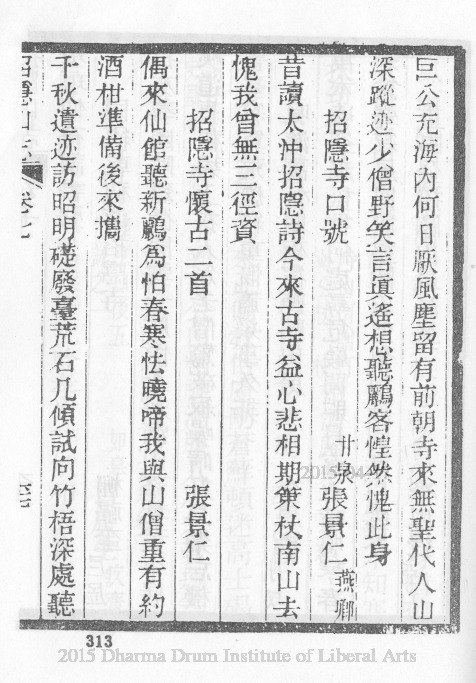 巨公充海內何日厭風塵留有前朝寺來無聖代人山
深蹤迹少僧野笑言眞遙想聽鸝客惶然愧此身
招隱寺口號
甘泉張景仁燕卿
昔讀太沖招隱詩今來古寺益心悲相期策杖南山去
愧我曾無三徑資
招隱寺懷古二首
張景仁
偶來仙館聽新鸝爲怕春寒怯曉啼我與山僧重有約
酒柑準備後來攜
千秋遺迹訪昭明礎廢臺荒石几傾試向竹梧深處聽
招隱山志
卷七
313
2015 Dharma Drum Institute of Liberal Arts